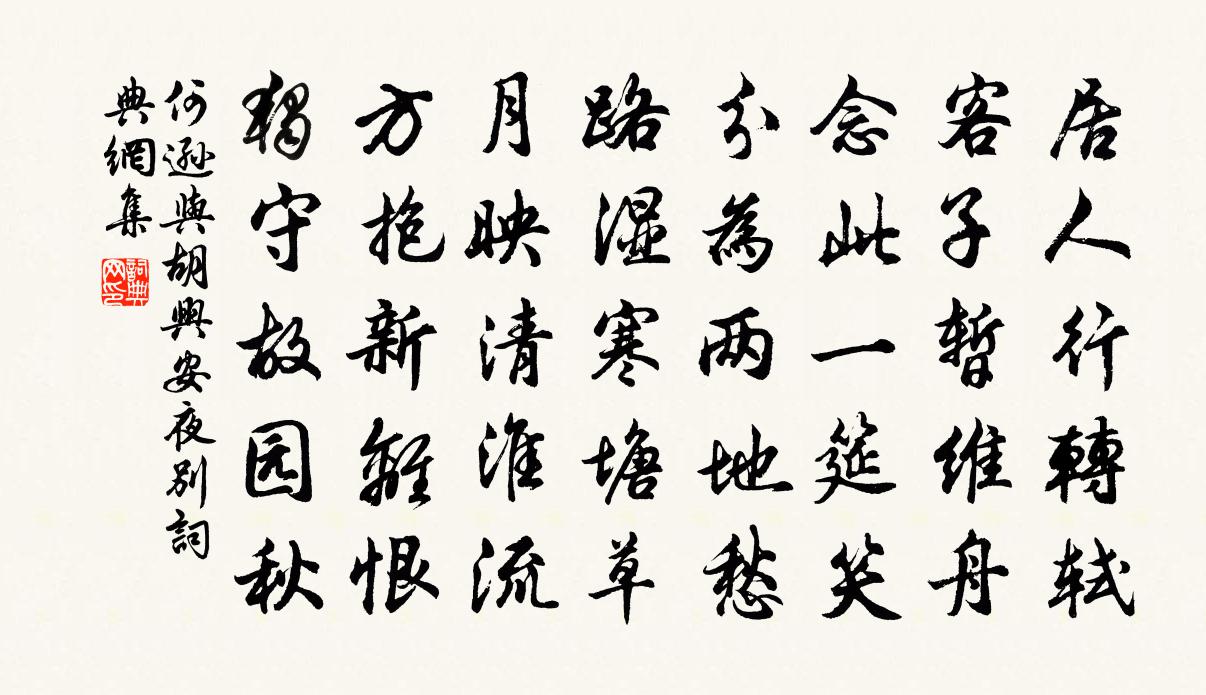 居人行轉軾
客子暫維舟
念此一筵笑
分為两地愁
路湿寒塘草
月映清淮流
方抱新離恨
獨守故园秋
何遜與胡興安夜別詞
典網集
詞典
网印